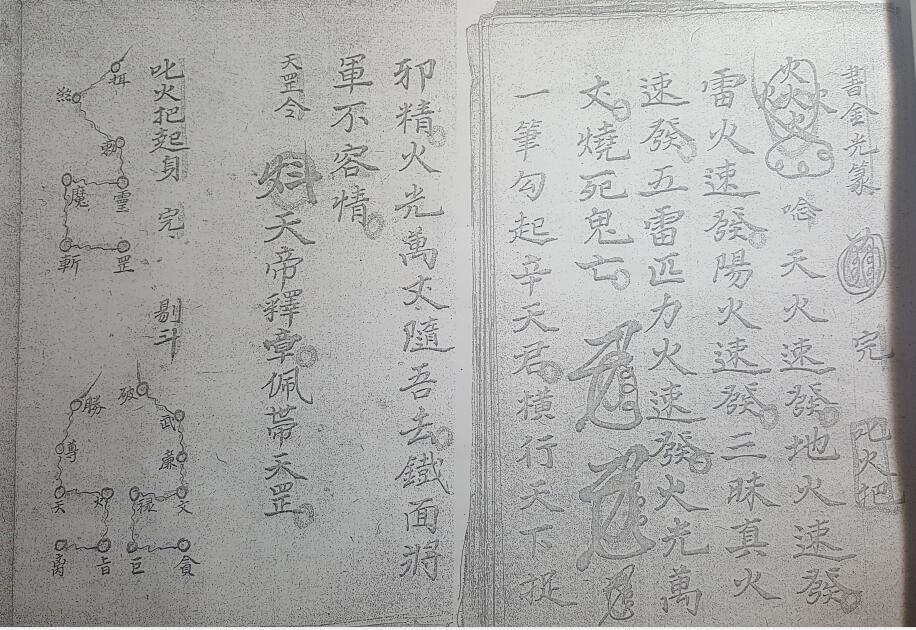 書金光篆 完 叱火把
火火火火 唸 天火速發地火速發
雷火速發陽火速發三昧真火
速發五雷匹力火速發火光萬
丈燒死鬼亡
一筆勾起辛天君橫行天下捉
邪精火光萬丈隨吾去鐵面將
軍不容情
天罡令 天帝釋章佩帶天罡
叱火把起身 完 剔斗
魔 靈
斬 罡
破
勝 武
尊 廉
天 祿 文
巨 貪